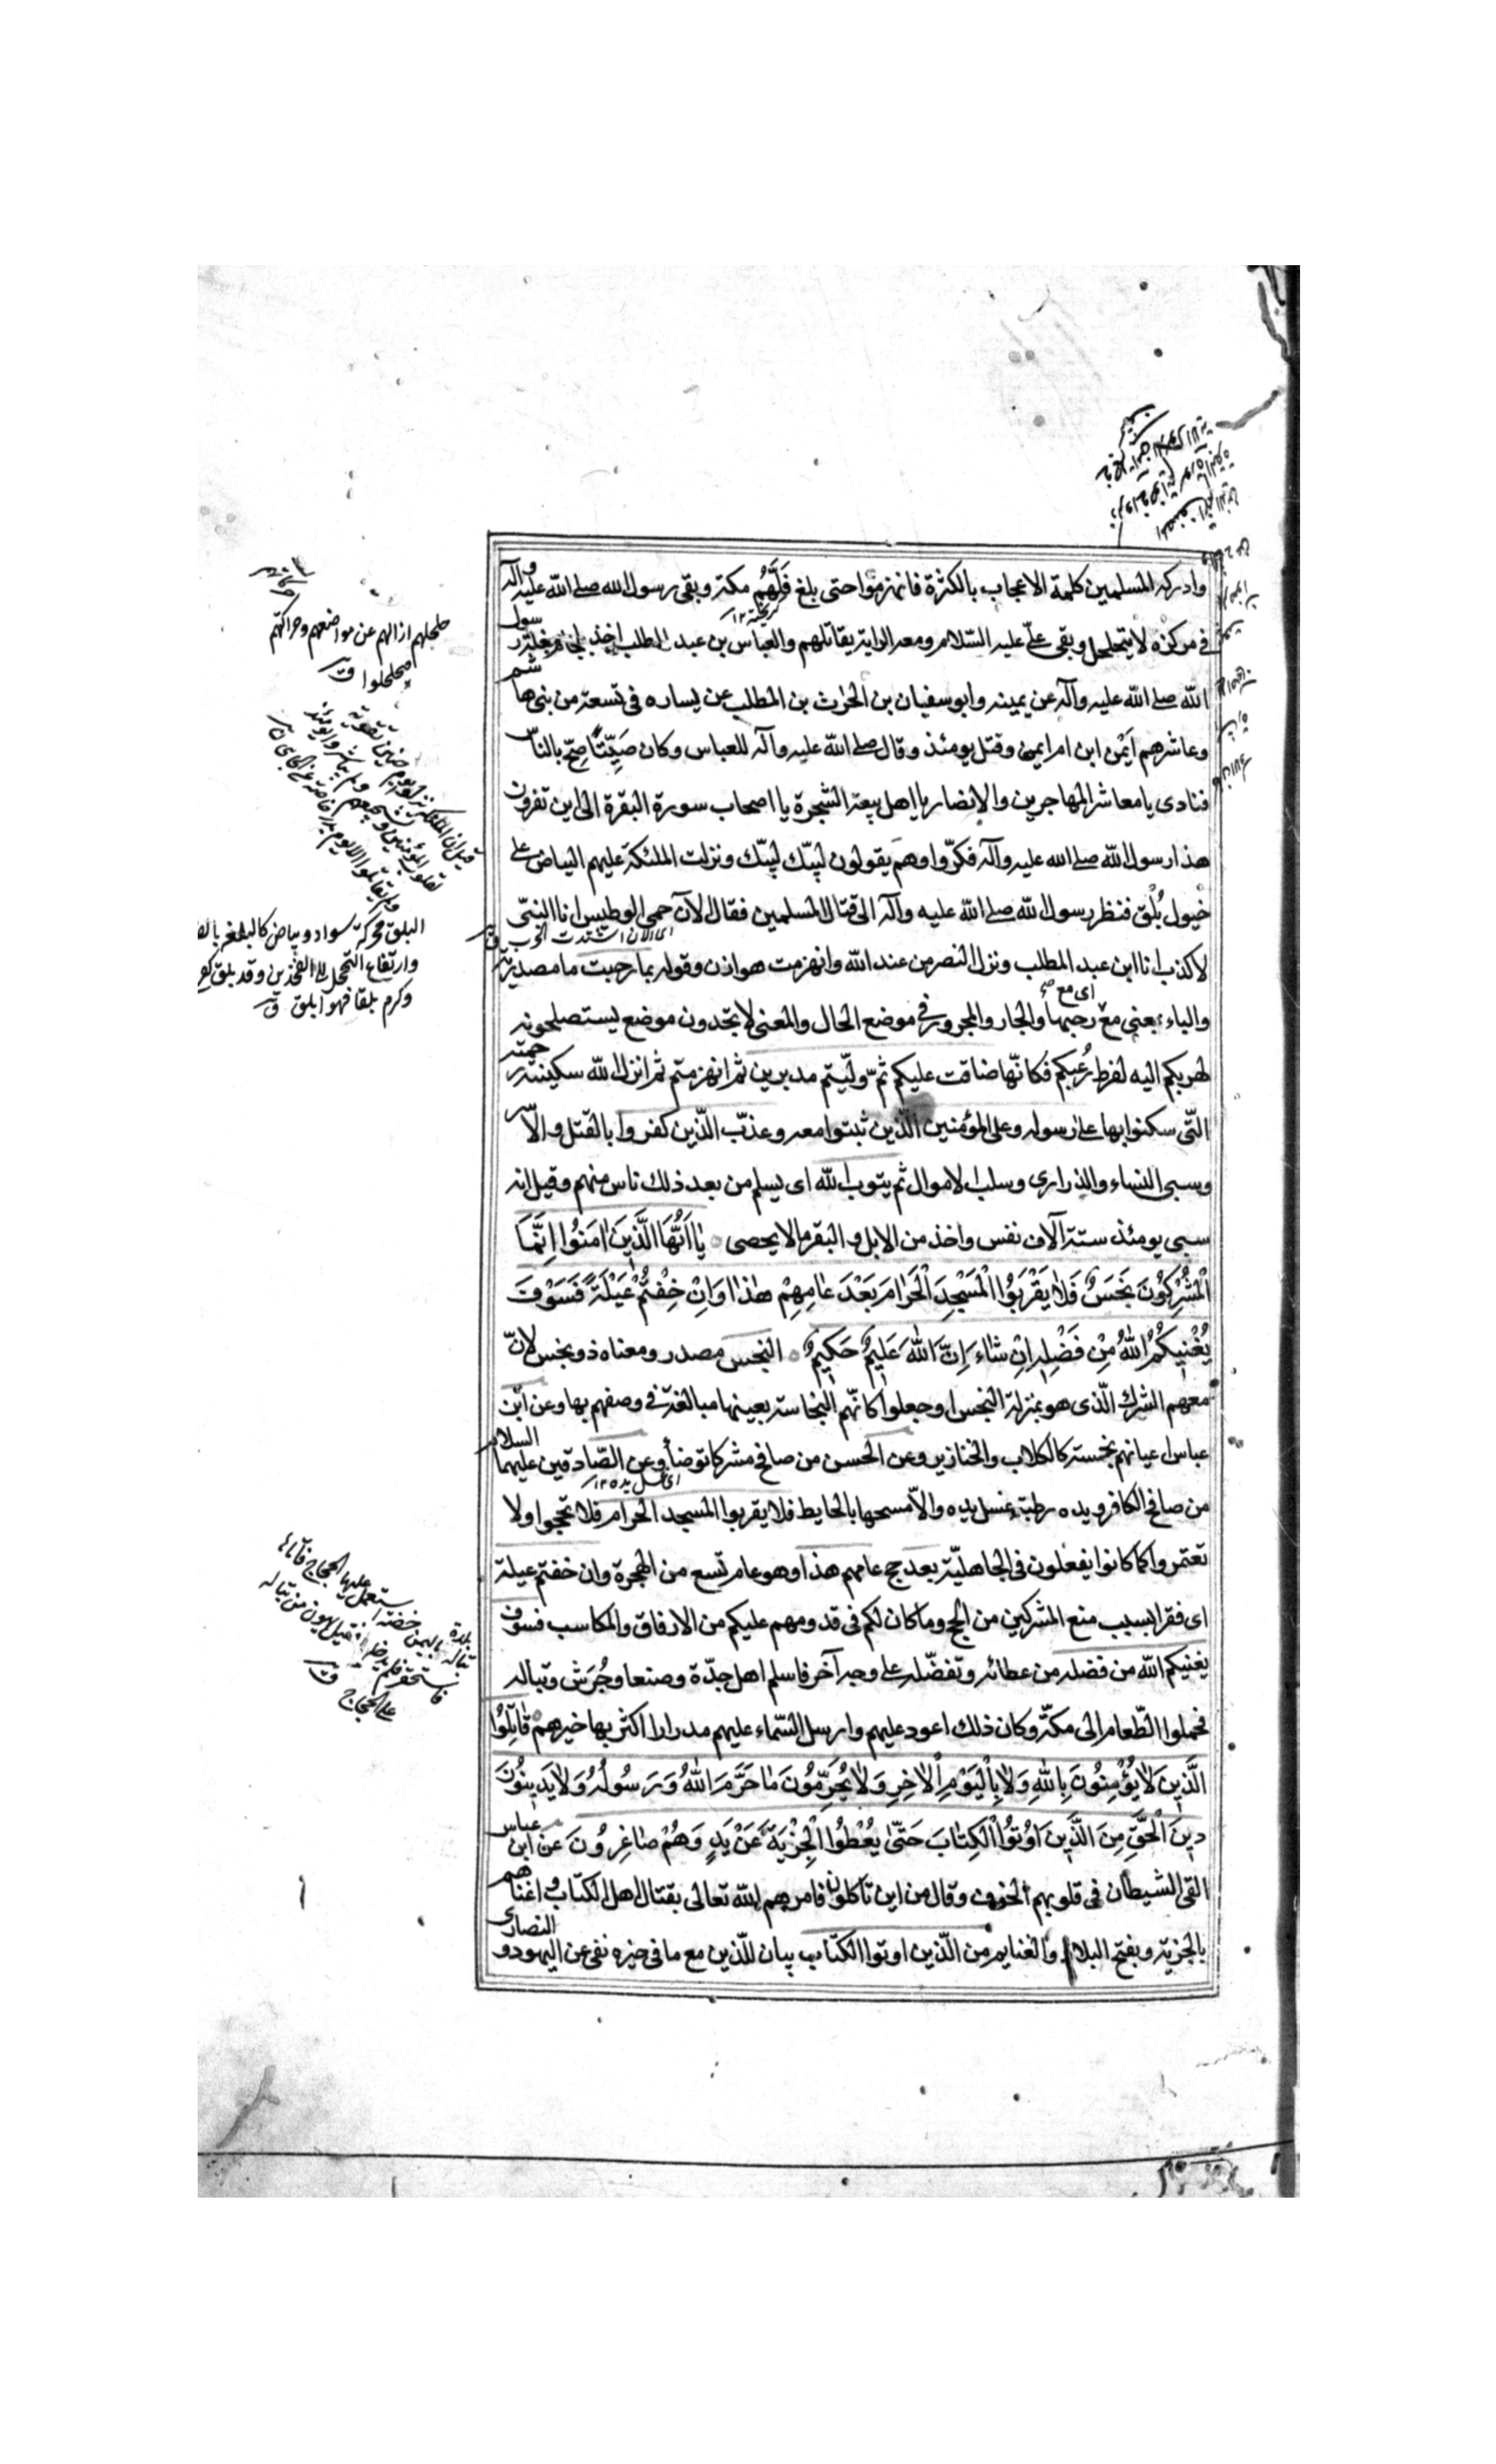 وادركه المسلمين كلمة الاعجاب بالكثرة فانهزموا حتى بلغ فَلُّهُم مكة وبقى رسول الله صلى الله عليه وآله
فى مركزه لا يتحلحل وبقى على عليه السلام ومعه الراية يقاتلهم والعباس بن عبد المطلب اخذ بلجام بغلة رسول
الله صلى الله عليه وآله عن يمينه وابو سفيان بن الحرث بن المطلب عن يساره فى تسعة من بنى هاشم
وعاشرهم اَيْمن ابن ام ايمن وقتل يومئذ وقال صلى الله عليه وآله للعباس وكان صَيِّتًا صِحْ بالناس
فنادى يا معاشر المهاجرين والانصار يا اهل بيعة الشجرة يا اصحاب سورة البقرة الى اين تفرون
هذا رسول الله صلى الله عليه وآله فكرّوا وهم يقولون لبيّك لبيّك ونزلت الملئكة عليهم البياض على
خيول بُلْق فنظر رسول الله صلى الله عليه وآله الى قتال المسلمين فقال الآن حمى الوطيس انا النبىّ
اى الآن اشتدت الحرب
لا كذب انا ابن عبد المطلب ونزل النصر من عند الله وانهزمت هوازن وقوله بما رحبت ما مصدرية
والباء بمعنى مع اى مع رحبها والجار والمجرور فى موضع الحال والمعنى لا تجدون موضع يستصلحونه
لهربكم اليه لفرط رُعبكم فكانّها ضاقت عليكم ثمّ ولّيتم مدبرين ثم انهزمتم ثم انزل الله سكينته رحمته
التّى سكنوا بها على رسوله وعلى المؤمنين الّذين ثبتوا معه وعذّب الّذين كفروا بالقتل والاسر
وسبى النساء والذرارى وسلب الاموال ثم يتوب الله اى يسلم من بعد ذلك ناس منهم وقيل انه
سبى يومئذ ستة آلاف نفس واخذ من الابل والبقر ما لا يحصى يٰا اَيُّهَا الَّذينَ اٰمَنُوا اِنَّمَا
الْمُشْرِكُونَ نَجَسٌ فَلٰا يَقْرَبُوا الْمَسْجِدَ الْحَرٰامَ بَعْدَ عٰامِهِمْ هٰذٰا وَاِنْ خِفْتُمْ عَيْلَةً فَسَوْفَ
يُغْنِيكُمُ اللهُ مِنْ فَضْلِهِ اِنْ شٰاءَ اِنَّ اللهَ عَليمٌ حَكيمٌ النجس مصدر ومعناه ذو نجس لانّ
معهم الشرك الّذى هو بمنزلة النجس او جعلوا كانّهم النجاسة بعينها مبالغة فى وصفهم بها وعن ابن
عباس اعيانهم نجسة كالكلاب والخنازير وعن الحسن من صافح مشركا توضأ وعن الصّادقين عليهما السلام
اى غسل يده ١٢
من صافح الكافر ويده رطبة غسل يده والاّ مسحها بالحايط فلا يقربوا المسجد الحرام فلا تحجوا ولا
تعتمروا كما كانوا يفعلون فى الجاهليّة بعد حج عامهم هذا وهو عام تسع من الهجرة وان خفتم عيلة
اى فقرا بسبب منع المشركين من الحج وما كان لكم فى قدومهم عليكم من الارفاق والمكاسب فسوف
يغنيكم الله من فضله من عطائه وتفضّله على وجه آخر فاسلم اهل جدّة وصنعا وجُرَش وتباله
فحملوا الطّعام الى مكّة وكان ذلك اعود عليهم وارسل السّماء عليهم مدرارا اكثر بها خيرهم قٰاتِلُوا
الَّذينَ لٰا يُؤْمِنُونَ بِاللهِ وَلٰا بِالْيَوْمِ الْاٰخِرِ وَلٰا يُحَرِّمُونَ مٰا حَرَّمَ اللهُ وَرَسُولُهُ وَلٰا يَدينُونَ
دينَ الْحَقِّ مِنَ الَّذينَ اُوتُوا الْكِتٰابَ حَتّٰى يُعْطُوا الْجِزْيَةَ عَنْ يَدٍ وَهُمْ صٰاغِرُونَ عن ابن عباس
القى الشيطان فى قلوبهم الخوف وقال من اين تأكلون فامرهم الله تعالى بقتال اهل الكتاب واغناهم
بالجزية وبفتح البلاد والغنايم من الّذين اوتوا الكتاب بيان للّذين مع ما فى حيزه نفى عن اليهود والنصارى
حلحلهم ازالهم عن مواضعهم وحركهم
فتحلحلوا ق
البلق محركة سواد وبياض كالبلقة بالضم
وارتفاع التحجيل الى الفخذين وقد بلق كفرح
وكرم بلقا فهو ابلق ق
تباله بلدة باليمن خصبة استعمل عليها الحجاج فاتاها
فاستحقرها فلم يدخلها فقيل اهون من تباله
على الحجاج ق